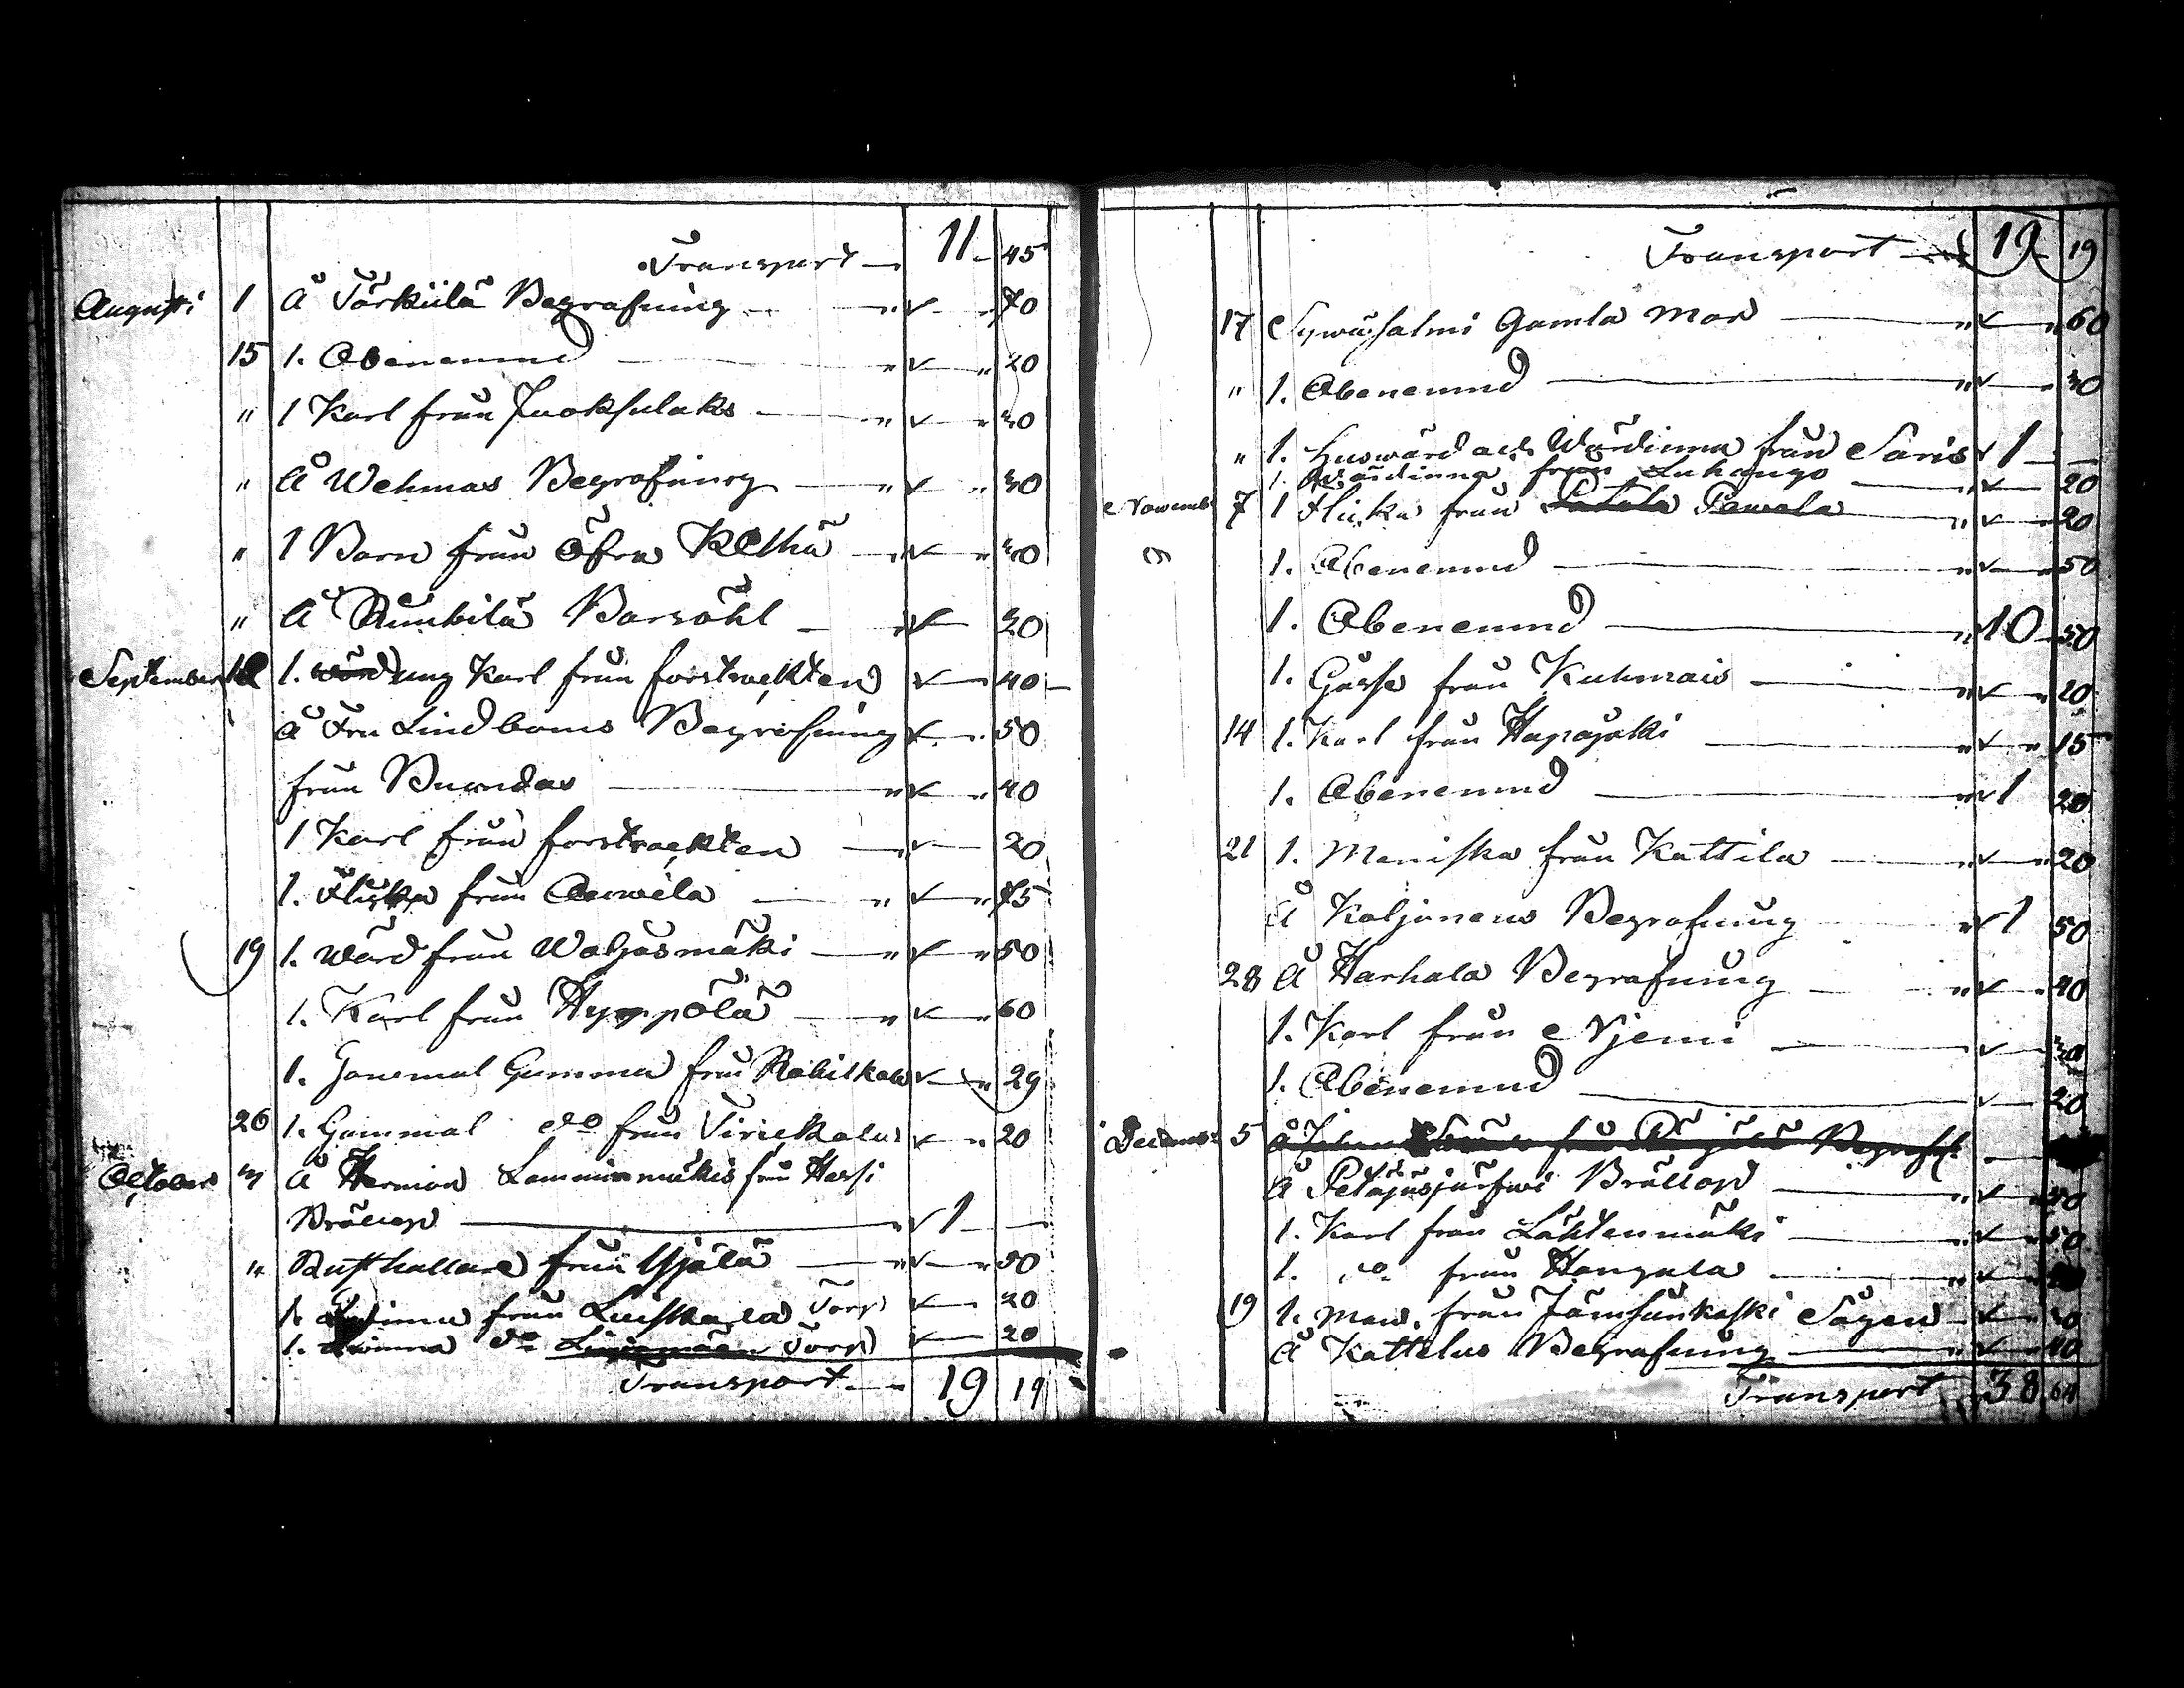 Transport — 11 - 45
Augusti 1 Å Törkiilä Begrafning - - " ✓ - " 70
15 1. Obenemnd — " ✓ — " 20
" 1 Karl från Juoksulaks — " ✓ — " 30
" Å Wehmas Begrafning — " ✓ " 30
" 1 Barn från Öfra Kelhä — " ✓ — " 30
" Å Barsöhl — " ✓ — 20
September 1. ung Karl från forstrackten ✓ — 40 —
Å Fru Lindboms Begrafning ✓ - " 50
från — " ✓ — " 40
1 Karl från forstrackten — " ✓ — 20
1. Flicka från — " ✓ — " 75
19 1. Wärd från Waljasmäki — " ✓ — " 50
1. Karl från Hyppölä — " ✓ — " 60
1. Gumma från ✓ — " 29
26 1. Gammal do från ✓ — " 20
October 3 Å Herman Lamminmäkis från Harsi
Bröllop — " ✓ 1 — —
" Rusthållare från — " ✓ — " 50
1. från Torp ✓ — 20
1. do Torp ✓ — 20
Transport — 19 19
Transport — 19 19
17 Sywäsalmi Gamla Mor — " ✓ — " 60
" 1. Obenemnd — " ✓ — " 30
" 1. Huswärd och Wärdinna från Saris ✓ 1 — —
1. Wärdinna från Luhango — " ✓ — 20
Novemb 7 1 Flicka från Pawala — " ✓ — 20
1. Obenemnd — " ✓ — " 50
1. Obenemnd — " 10 — 50
1. Gåsse från Kuhmais — " ✓ — " 20
14 1. Karl från — " ✓ — " 15
1. Obenemnd — " ✓ 1 20
21 1. Meniska från Kattila — " ✓ — " 20
Å Koljonens Begrafning — " ✓ 1 50
28 Å Harhala Begrafning — " ✓ — " 40
1. Karl från Njemi — ✓ — 30
1. Obenemnd — ✓ — 20
Decemb: 5 Å
Å Petäjäsjärfwi Bröllop — " ✓ —
1. Karl från Lähtenmäki — " ✓ — " 50
1. do från Hangala — " ✓ —
19 1. Man. från Jämsänkoski Sågen — ✓ —
Å Kattelus Begrafning — " ✓ — 40
Transport — 38 64